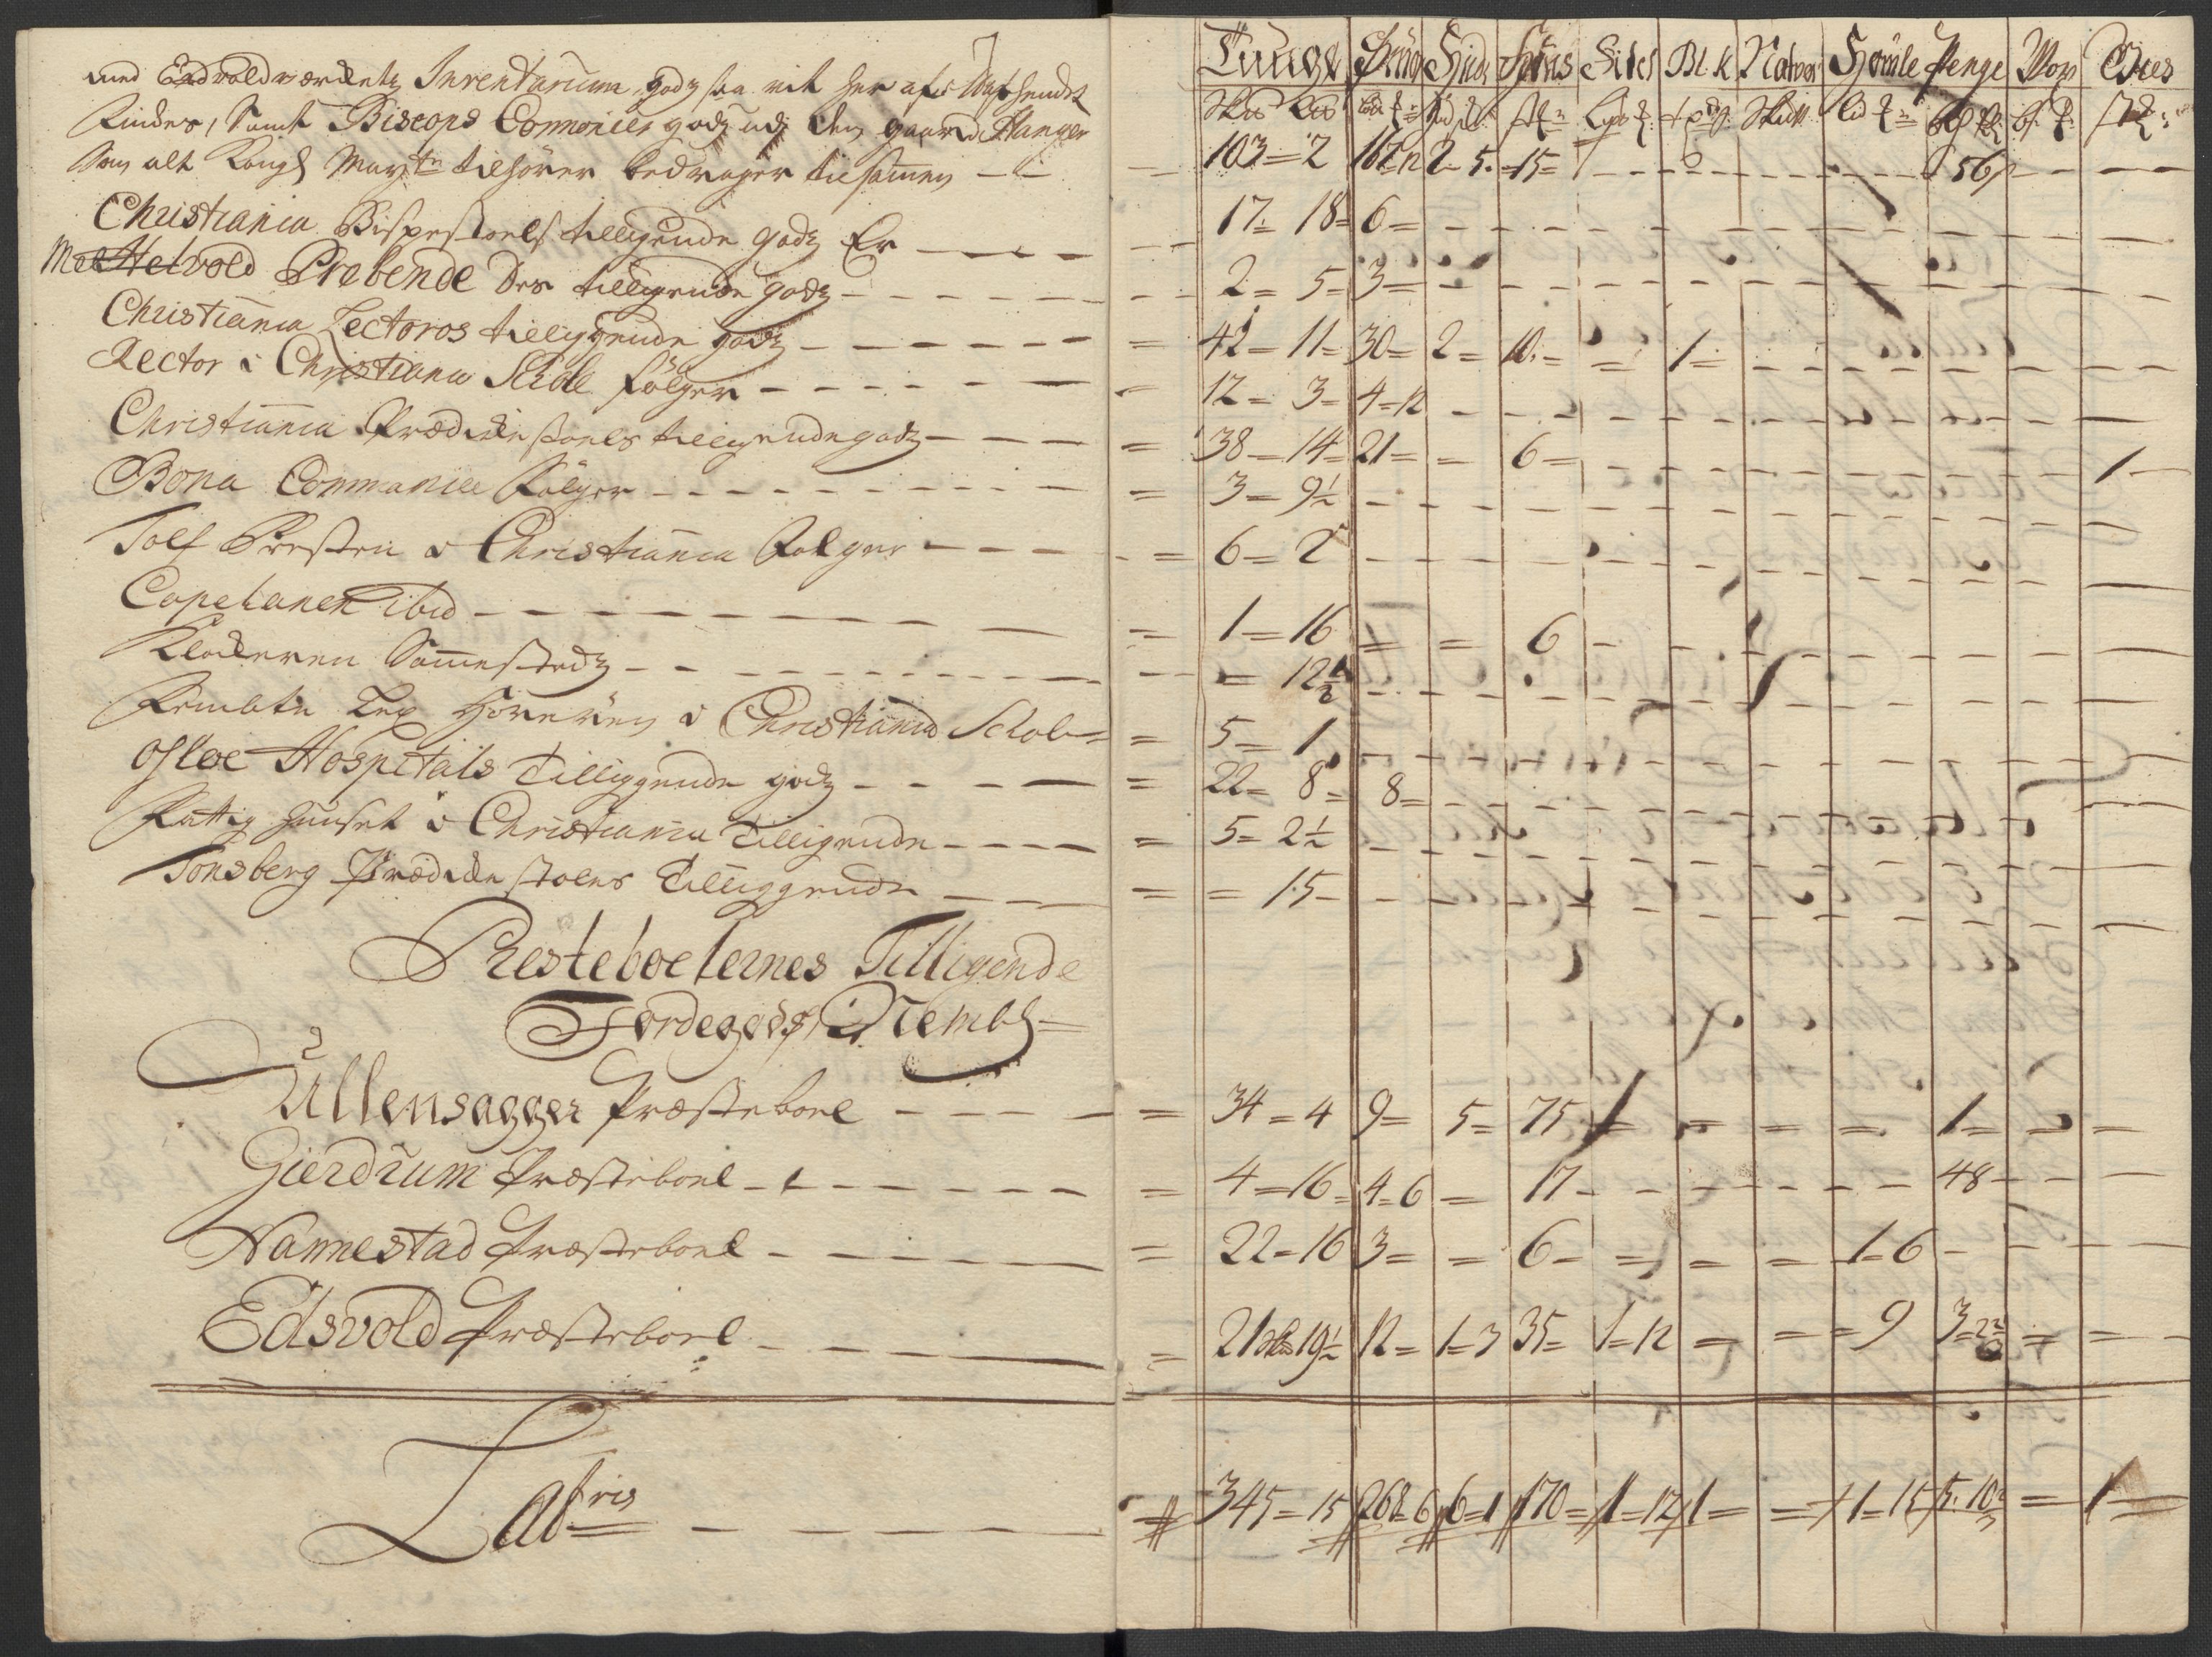 med Eidvoldværckets Inventarium godz saa vit her af
findes, Samt Biscops Commonies godz udj den gaard Hanger
Som alt Kongl Mayts tilhører bedrager tilsamen
Christiania Bispestoels tilligende godz Er
Helvold Præbende des tilligende godz
Christiania Lectoros tilliggende godz
Rector i Christiania Schole følger
Christiania Prædicke stoels tilligende godz
Bona Communia følger
Tolf Præsten i Christiania følger
Capelanen ibid
Klockeren Sammestedz
Fembte Lex Høreren i Christiania Schole
Osloe Hospitals Tilliggende godz
Fattig huuset i Christiania Tilligende
Tonsberg Prædicke stoels Tilliggende
Presteboelernes Tilligende
Jordegods, Nembl=
Ullensagger Præsteboel
Gierdrum Præsteboel
Nannestad Præsteboel
Eidsvold Præsteboel
Lateris
Tunge Smør Hud Korn Sild Bl. k Natvor Homle Penge Wox Oxes
103= 2 2 5. 15= 56
17= 18= 6=
2= 5= 3=
42= 11= 30= 2= 10.= = 1=
12= 3= 4=12
38= 14= 21= = 6= 1
3= 9½
6= 2
1= 16 = = 6
= 12½
5= 1
22= 8= 8=
5= 2½
= 15
34= 4 9= 5= 75 = = = = 1= = =
4=16= 4=6 = 17 48
22=16 3= = 6= = = = 1=6
21 19½ 12= 1=3 35= 1=12 = = =9 3=22 = =
345=15 268=6 6=1 170= 1=12 1= = 1=15 5.10 = 1=